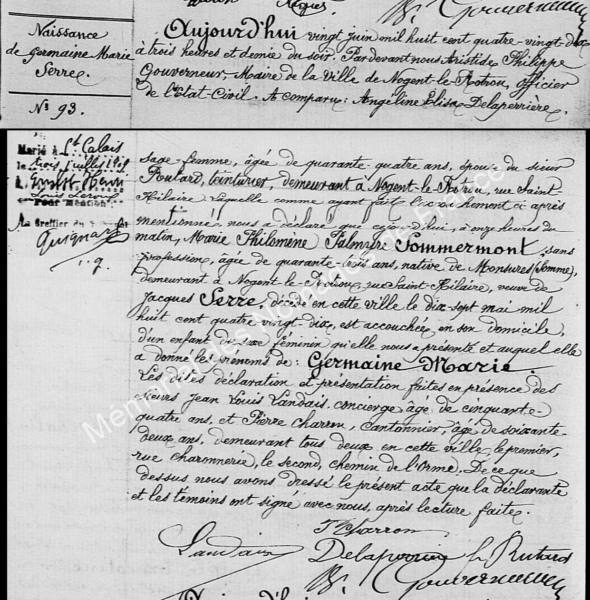 Naissance
de Germaine Marie
Serre.
N° 93.
Aujourd'hui vingt juin mil huit cent quatre-vingt-dix
à trois heures et demie du soir. Pardevant nous Aristide Philippe
Gouverneur, Maire de la Ville de Nogent-le-Rotrou, officier
de l'Etat-Civil. A comparu: Angéline Elisa Delaperrière
Marié à St Calais
le trois juillet 19
à
Pour mention
Le Greffier
Guignard
sage-femme, âgée de quarante-quatre ans, épouse du sieur
teinturier, demeurant à Nogent-le-Rotrou, rue Saint-
Hilaire, laquelle comme ayant fait l'accouchement ci-après
mentionné, nous a déclaré que cejourd'hui, à onze heures du
matin, Marie Philomène Palmire Sommermont, sans
profession, âgée de quarante ans, native de Monsures (Somme),
demeurant à Nogent-le-Rotrou, rue Saint-Hilaire, veuve de
Jacques Serre, décédé en cette ville le dix-sept mai mil
huit cent quatre-vingt-dix, est accouchée en son domicile,
d'un enfant du sexe féminin qu'elle nous a présenté et auquel elle
a donné les prénoms de: Germaine Marie.
Les dites déclaration et présentation faites en présence des
sieurs Jean Louis Landais, concierge, âgé de cinquante-
quatre ans, et Pierre Charron, Cantonnier, âgé de soixante-
deux ans, demeurant tous deux en cette ville, le premier,
rue Charonnerie, le second, chemin de l'Orme. De ce que
dessus nous avons dressé le présent acte que la déclarante
et les témoins ont signé avec nous, après lecture faite.
Charron
Landais Delaperrière
Gouverneur